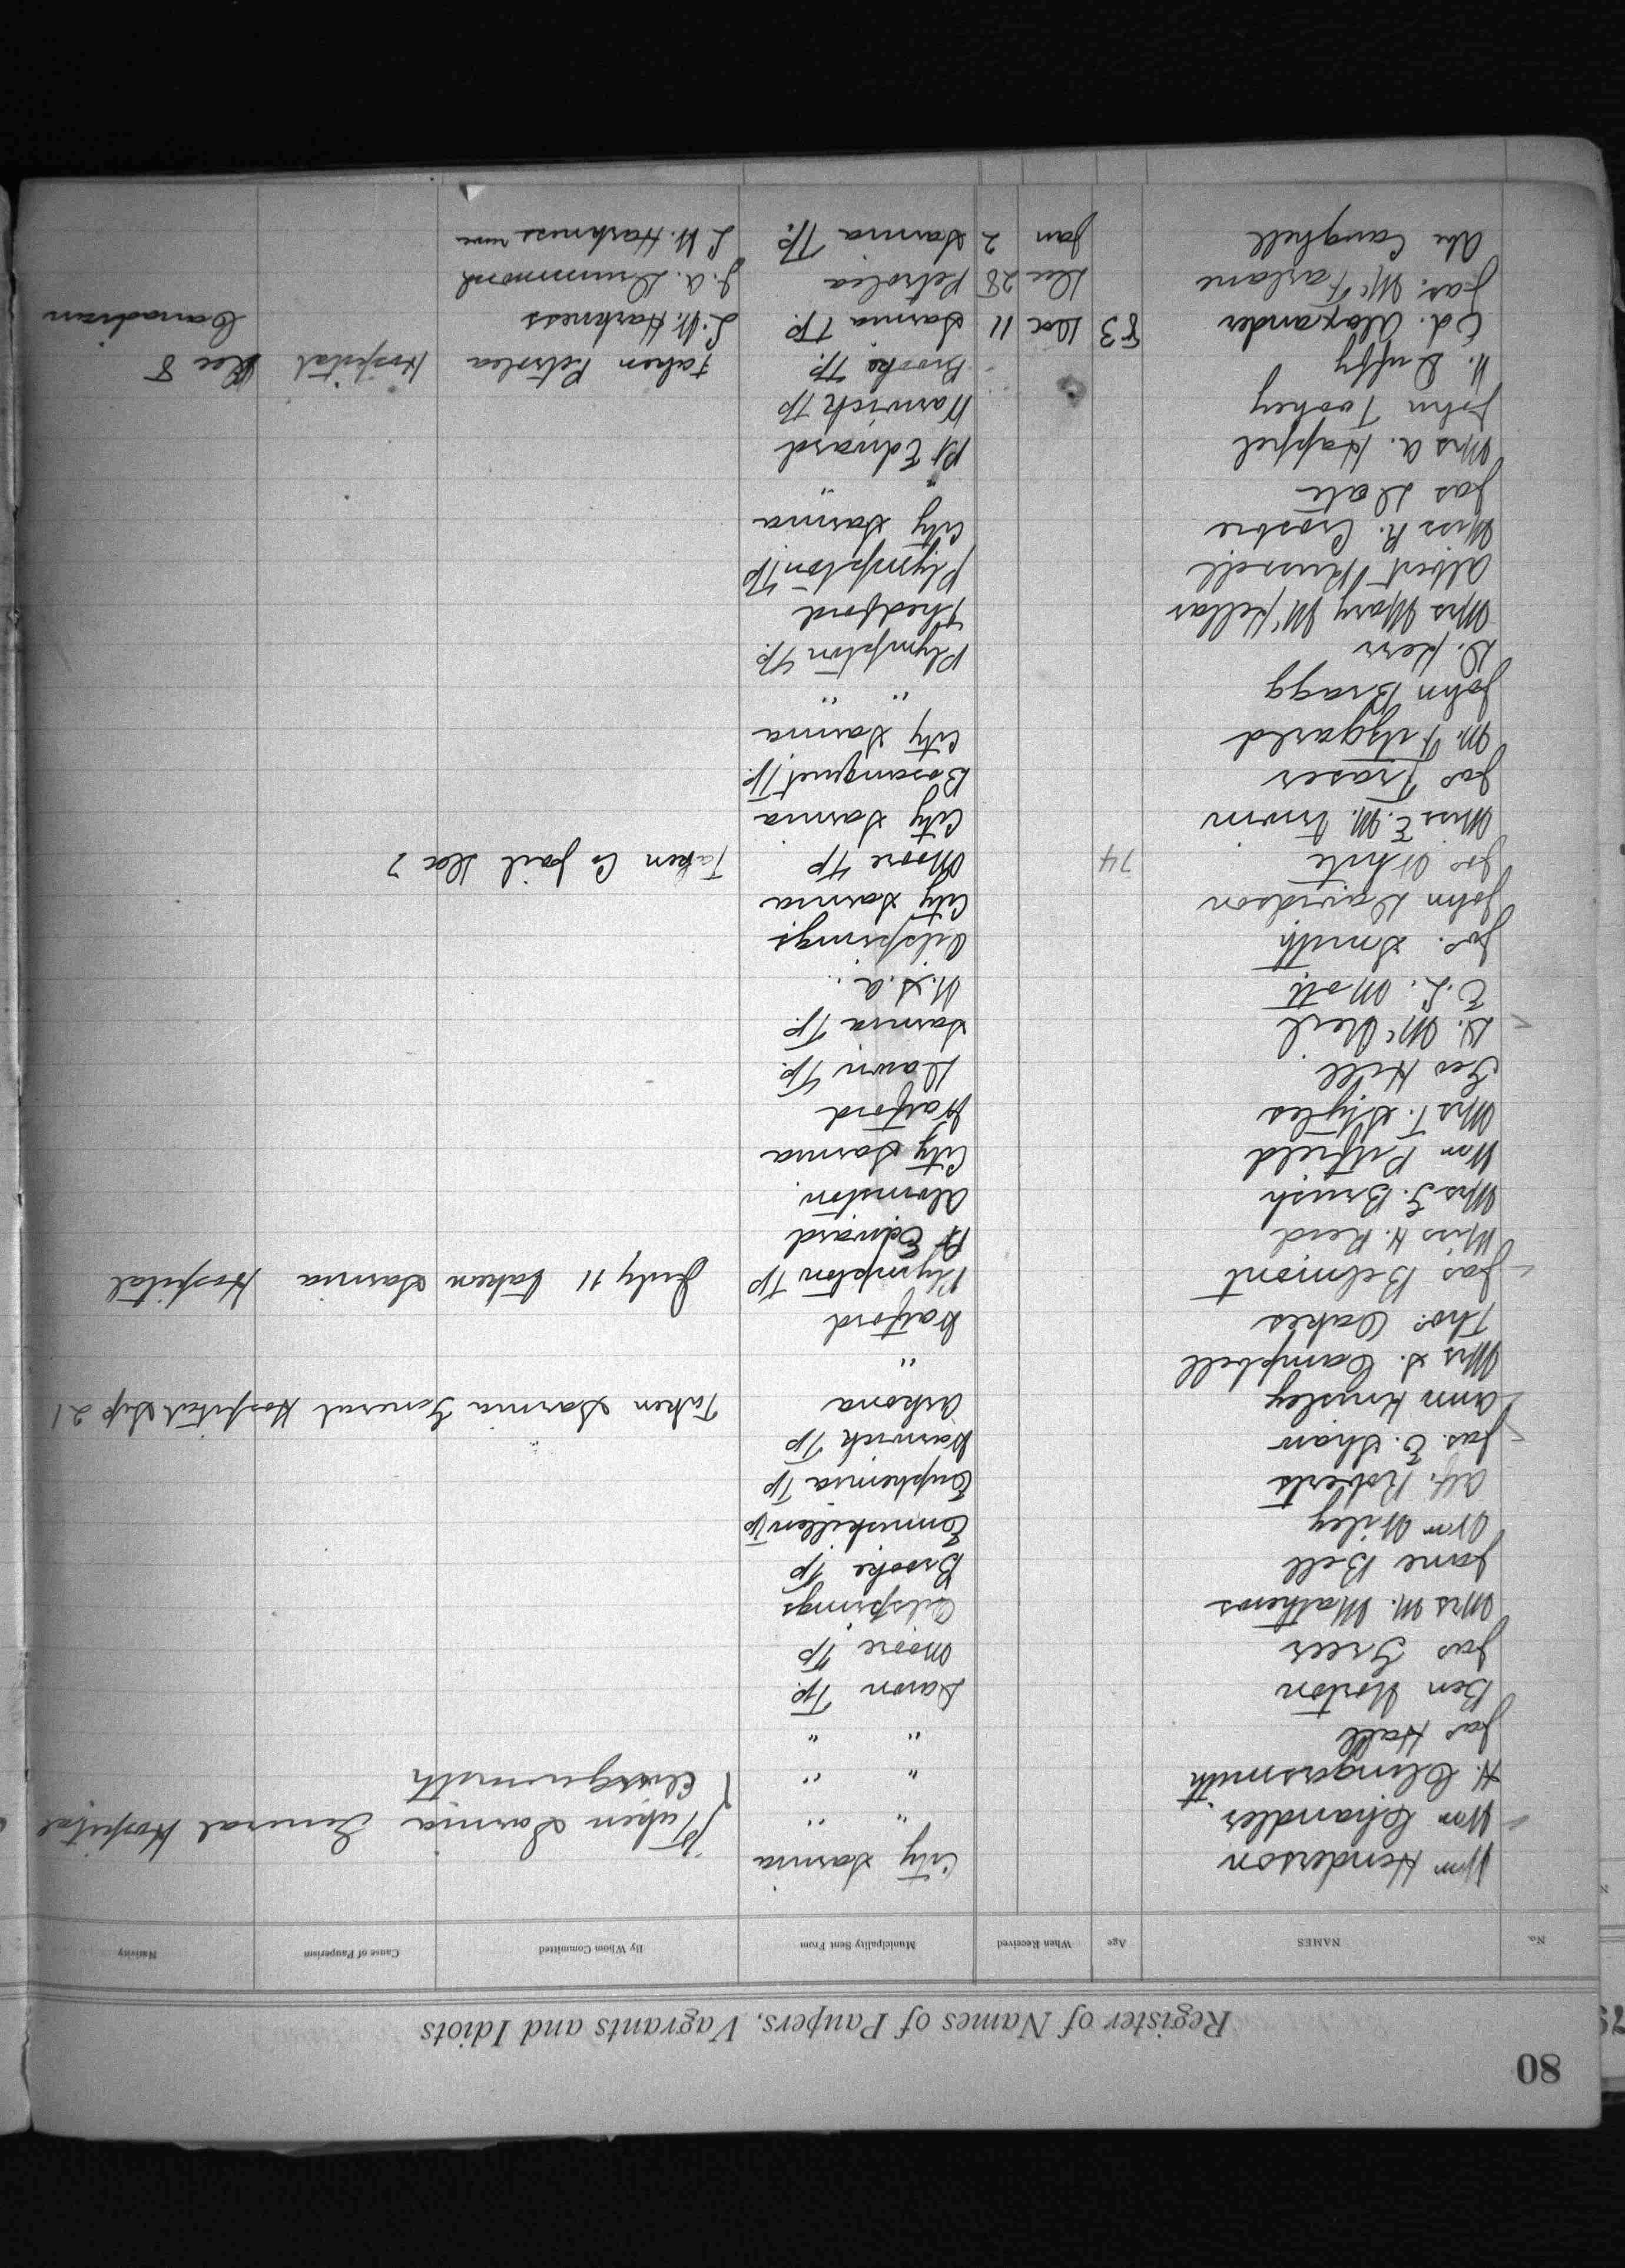 80
Register of Names of Paupers, Vagrants and Idiots
No. NAMES Age When Received Municipality Sent From By Whom Committed Cause of Pauperism Nativity
Wm Henderson City Sarnia
Wm Chandler " " Taken Sarnia General Hospital
H. Clingersmith " "
Jas Hall " "
Ben Norton Dawn Tp.
Jas Greer Moore Tp
Mrs M. Matheros Oilsprings
Jane Bell Brooke Tp
Wm Wiley Enniskillen Tp
Alf. Roberts Euphemia Tp
Jas. E. Shaw Warwick Tp
Ann Kingsley Arkona Taken Sarnia General Hospital Sep 21
Mrs S. Campbell "
Thos. Oakes Watford
Jas Belmont Plympton Tp July 11 taken Sarnia Hospital
Miss H. Reid Pt Edward
Mrs J. Brush Alvinston
Wm Pitfield City Sarnia
Mrs T. Styles Watford
Geo Hill Dawn Tp.
D. McNeil Sarnia Tp.
E. L. Mott U.S.A.
Jos. Smith Oilsprings
John Davidson City Sarnia
Jos White 74 Moore Tp Taken Co Jail Dec 7
Miss E. M. Unwin City Sarnia
Jas Fraser Bosanquet Tp.
M. Fitzgareld City Sarnia
John Bragg " "
D. Kerr Plympton Tp.
Mrs Mary McKellar Thedford
Albert Russell Plympton Tp
Miss R. Crosbie City Sarnia
Jas Date " "
Mrs A. Happel Pt Edward
John Toohey Warwick Tp
N. Duffy Brooke Tp. Taken Petrolea Hospital Dec 8
Ed. Alexander 83 Dec 11 Sarnia Tp. L. W. Harkness Canadian
Jas. McFarlane Dec 28 Petrolea J. A. Drummond
Abe Caughell Jan 2 Sarnia Tp. L. W. Harkness